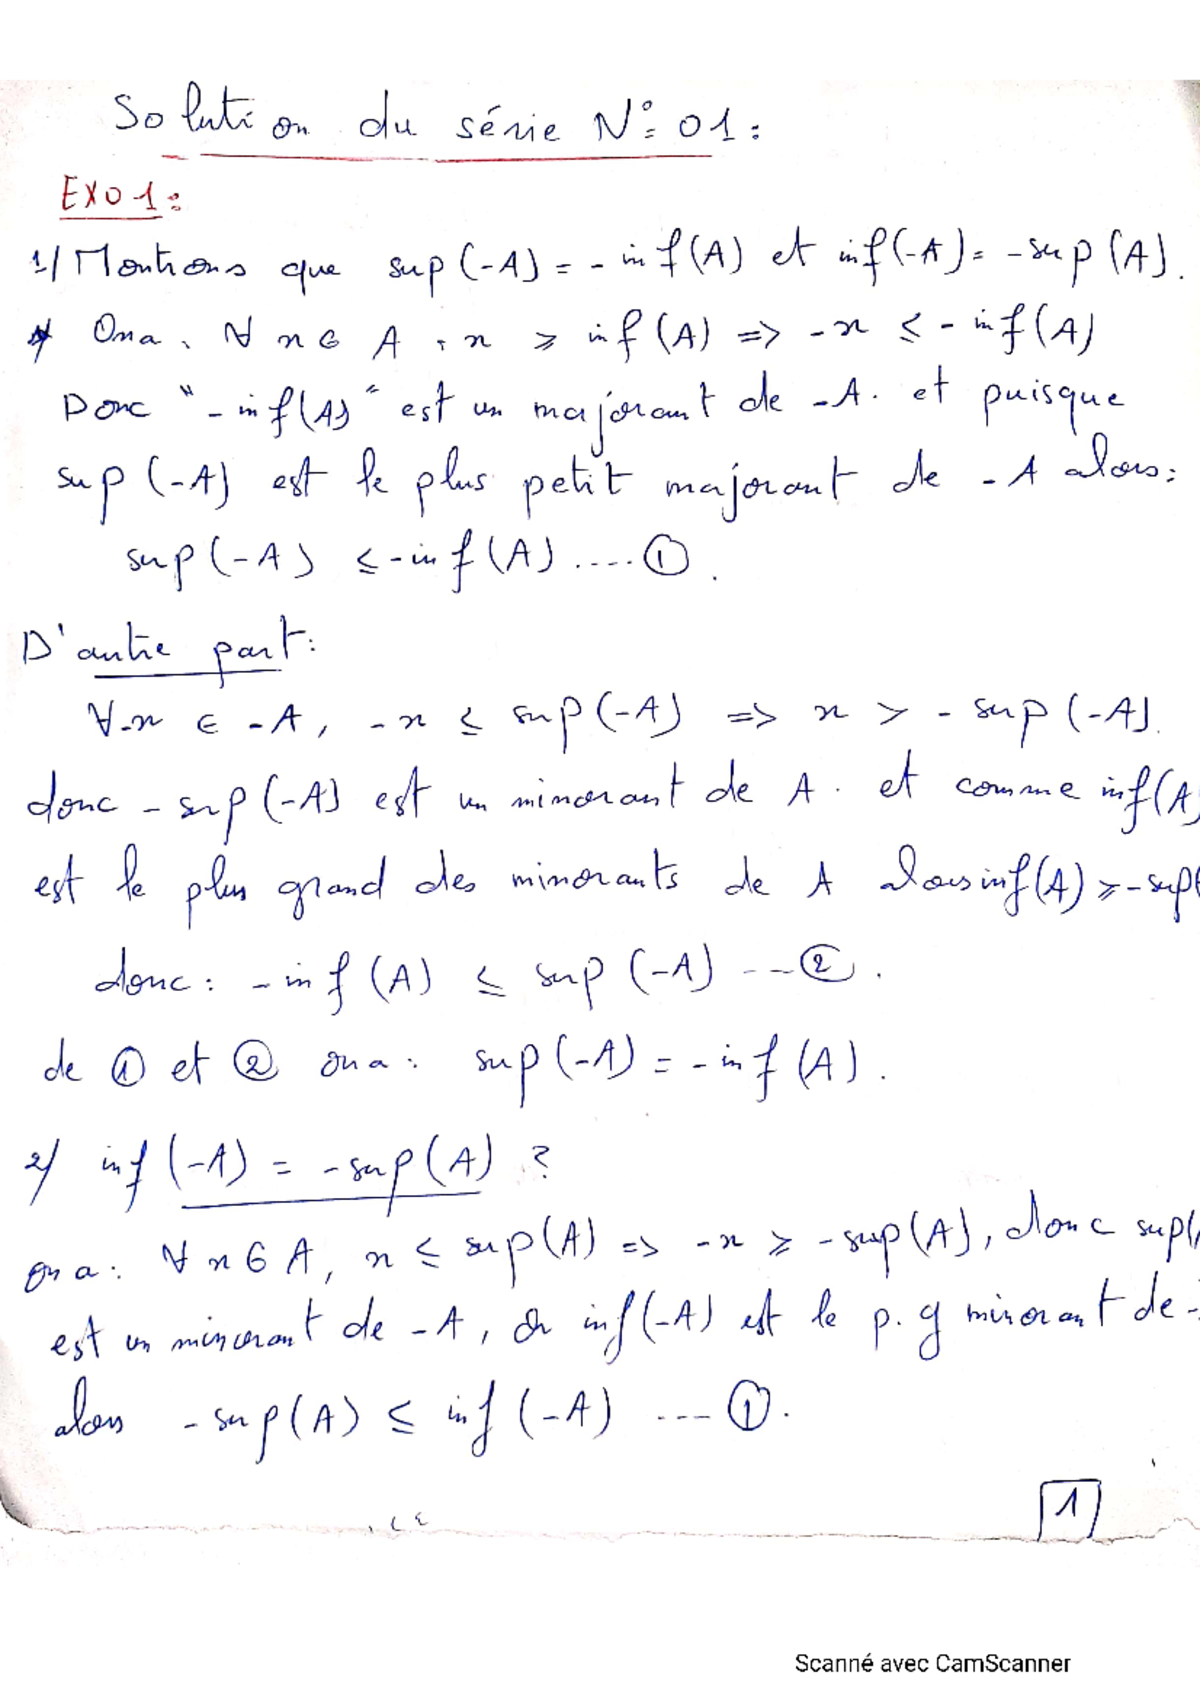 Solution du série N° 01:
EXO1:
1/ Montrons que sup(-A) = -inf(A) et inf(-A) = -sup(A).
* On a, ∀ x ∈ A, x ≥ inf(A) => -x ≤ -inf(A)
Donc "-inf(A)" est un majorant de -A. et puisque
sup(-A) est le plus petit majorant de -A alors:
sup(-A) ≤ -inf(A) .... ①.
D'autre part:
∀-x ∈ -A, -x ≤ sup(-A) => x > -sup(-A).
donc -sup(-A) est un minorant de A. et comme inf(A)
est le plus grand des minorants de A alors inf(A) ≥ -sup(
donc: -inf(A) ≤ sup(-A) --- ②.
de ① et ② on a: sup(-A) = -inf(A).
2/ inf(-A) = -sup(A) ?
on a: ∀ x ∈ A, x ≤ sup(A) => -x ≥ -sup(A), donc sup(
est un minorant de -A, or inf(-A) est le p.g minorant de -
alors -sup(A) ≤ inf(-A) --- ①.
1
Scanné avec CamScanner